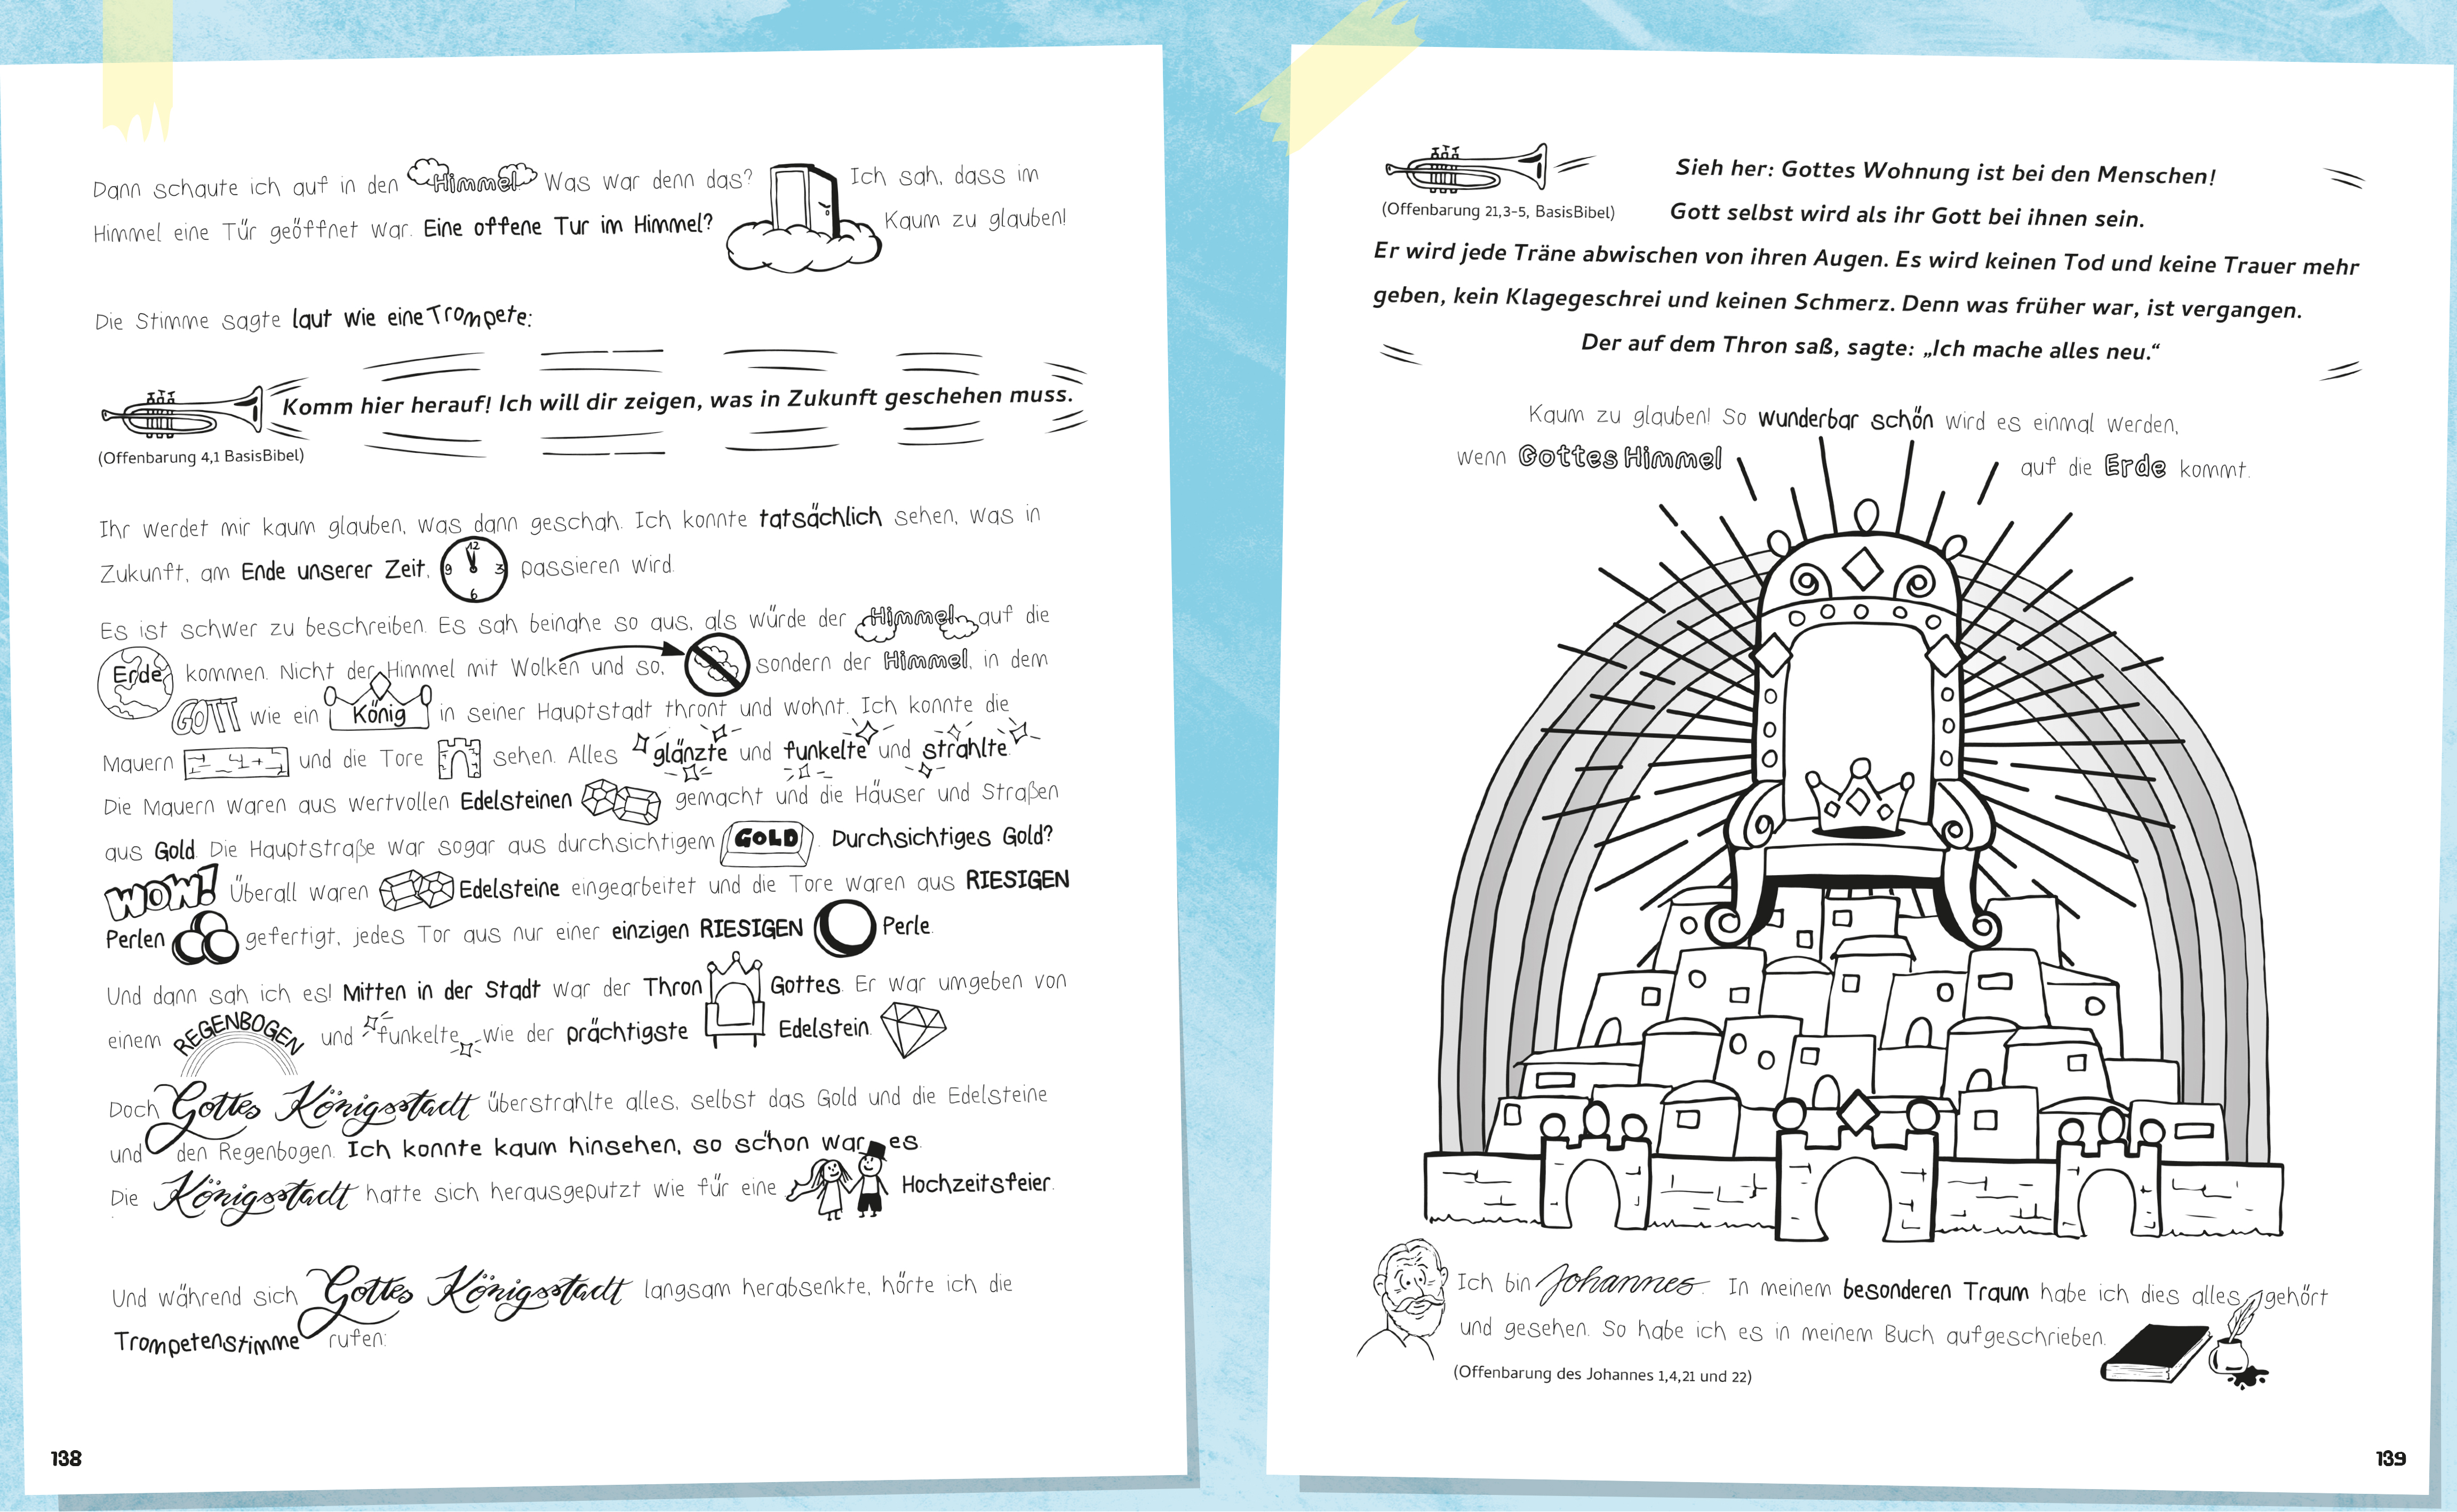 Dann schaute ich auf in den Himmel Was war denn das? Ich sah, dass im
Himmel eine Tür geöffnet war. Eine offene Tur im Himmel? Kaum zu glauben!
Die Stimme sagte laut wie eine Trompete:
Komm hier herauf! Ich will dir zeigen, was in Zukunft geschehen muss.
(Offenbarung 4,1 BasisBibel)
Ihr werdet mir kaum glauben, was dann geschah. Ich konnte tatsächlich sehen, was in
Zukunft, am Ende unserer Zeit, 12 3 6 9 passieren wird.
Es ist schwer zu beschreiben. Es sah beinahe so aus, als würde der Himmel auf die
Erde kommen. Nicht der Himmel mit Wolken und so, sondern der Himmel, in dem
GOTT wie ein König in seiner Hauptstadt thront und wohnt. Ich konnte die
Mauern und die Tore sehen. Alles glänzte und funkelte und strahlte.
Die Mauern waren aus wertvollen Edelsteinen gemacht und die Häuser und Straßen
aus Gold. Die Hauptstraße war sogar aus durchsichtigem GOLD. Durchsichtiges Gold?
WOW! Überall waren Edelsteine eingearbeitet und die Tore waren aus RIESIGEN
Perlen gefertigt, jedes Tor aus nur einer einzigen RIESIGEN Perle.
Und dann sah ich es! Mitten in der Stadt war der Thron Gottes. Er war umgeben von
einem REGENBOGEN und funkelte wie der prächtigste Edelstein.
Doch Gottes Königsstadt überstrahlte alles, selbst das Gold und die Edelsteine
und den Regenbogen. Ich konnte kaum hinsehen, so schön war es.
Die Königsstadt hatte sich herausgeputzt wie für eine Hochzeitsfeier.
Und während sich Gottes Königsstadt langsam herabsenkte, hörte ich die
Trompetenstimme rufen:
138
Sieh her: Gottes Wohnung ist bei den Menschen!
(Offenbarung 21,3-5, BasisBibel) Gott selbst wird als ihr Gott bei ihnen sein.
Er wird jede Träne abwischen von ihren Augen. Es wird keinen Tod und keine Trauer mehr
geben, kein Klagegeschrei und keinen Schmerz. Denn was früher war, ist vergangen.
Der auf dem Thron saß, sagte: „Ich mache alles neu.“
Kaum zu glauben! So wunderbar schön wird es einmal werden,
wenn Gottes Himmel auf die Erde kommt.
Ich bin Johannes. In meinem besonderen Traum habe ich dies alles gehört
und gesehen. So habe ich es in meinem Buch aufgeschrieben.
(Offenbarung des Johannes 1,4,21 und 22)
139